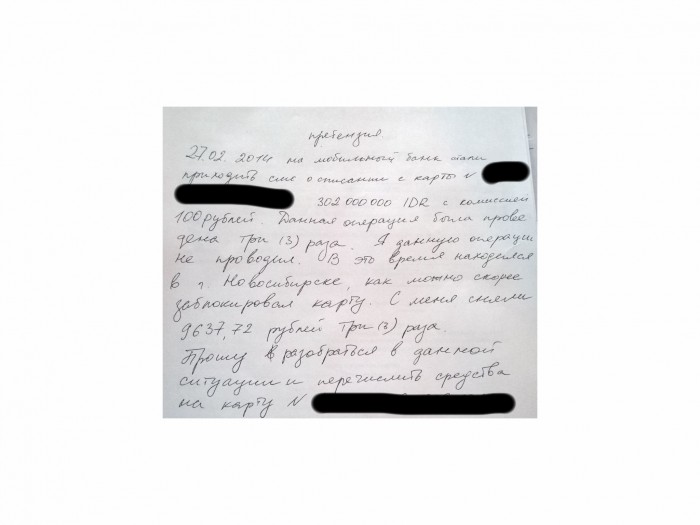 претензия
27.02.2014 на мобильный банк стали
приходить смс о списании с карты N
302000000 IDR с комиссией
100рублей. Данная операция была прове
дена три (3) раза. Я данную операции
не проводил. В это время находился
в г. Новосибирске, как можно скорее
заблокировал карту. С меня сняли
9637,72 рублей три (3) раза.
Прошу разобраться в данной
ситуации и перечислить средства
на карту N